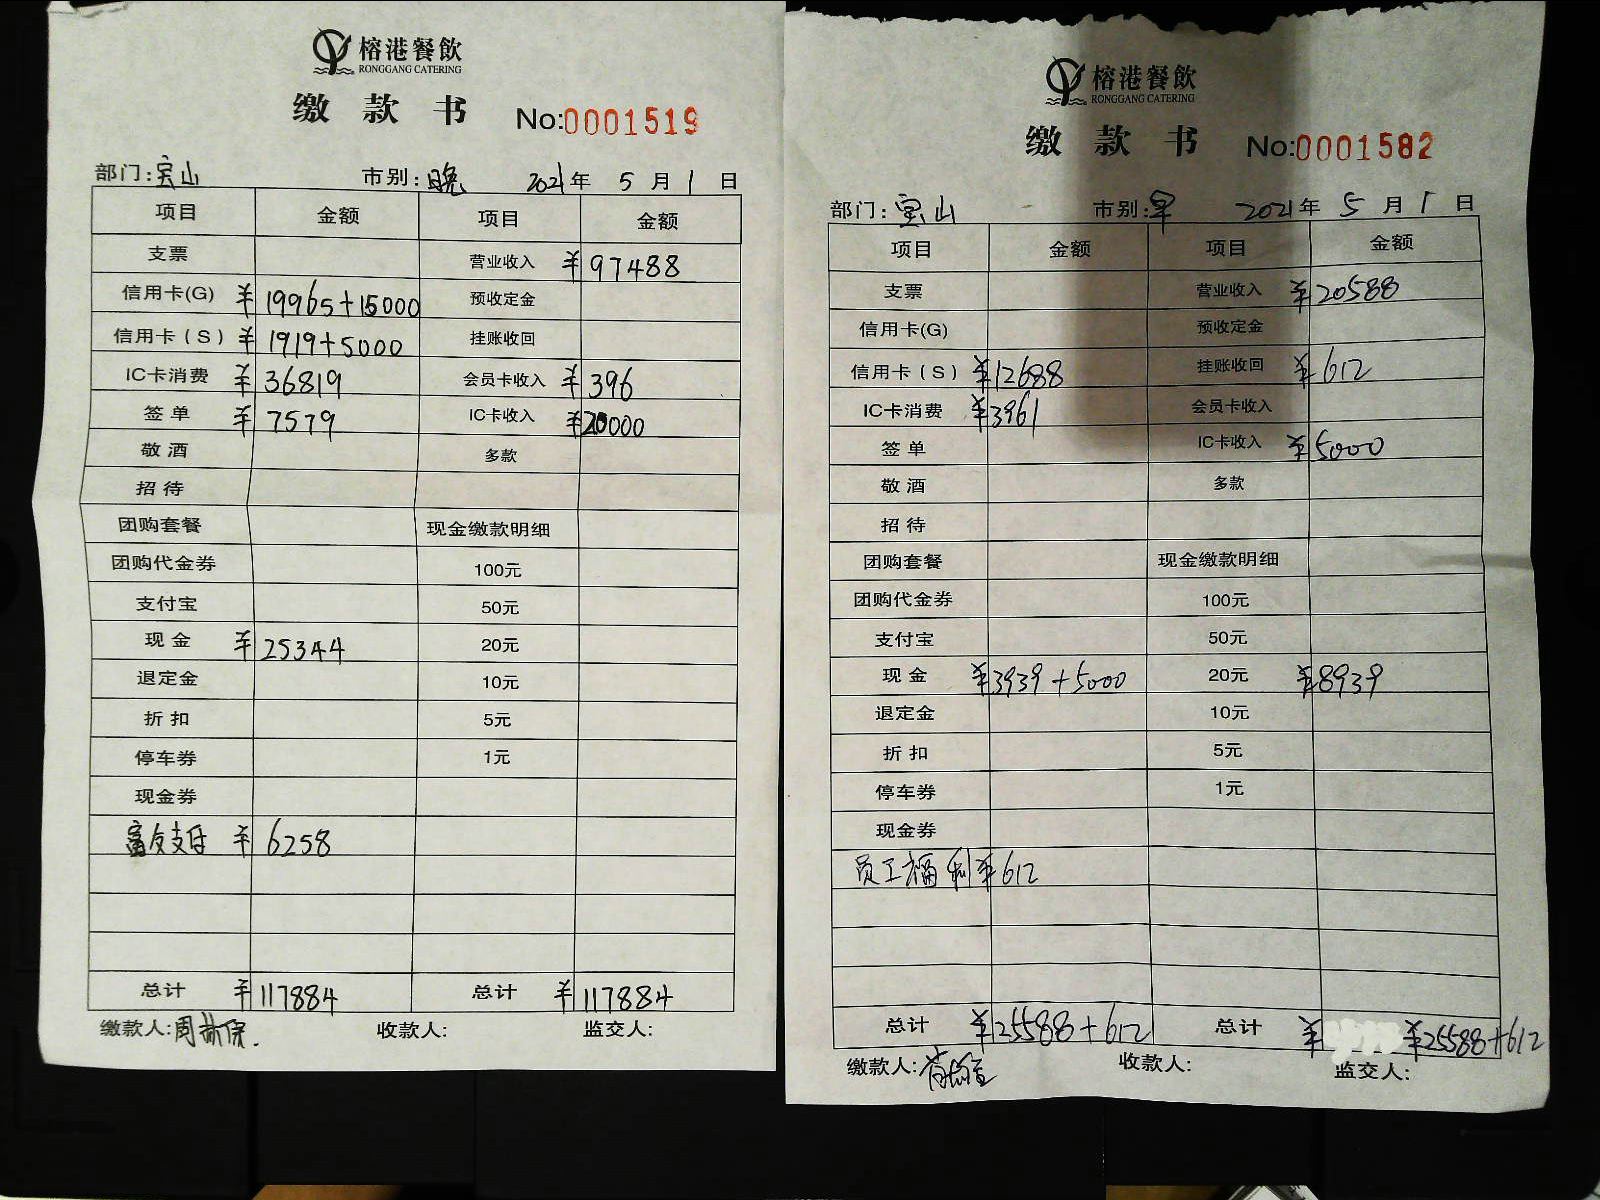 榕港餐飲
RONGGANG CATERING
缴款书 No:0001519
部门:宝山 市别:晚 2021年5月1日
项目 金额 项目 金额
支票 营业收入 ¥97488
信用卡(G) ¥19965+15000 预收定金
信用卡(S) ¥1919+5000 挂账收回
IC卡消费 ¥36819 会员卡收入 ¥396
签单 ¥7579 IC卡收入 ¥20000
敬酒 多款
招待
团购套餐 现金缴款明细
团购代金券 100元
支付宝 50元
现金 ¥25344 20元
退定金 10元
折扣 5元
停车券 1元
现金券
富友支付 ¥6258
总计 ¥117884 总计 ¥117884
缴款人:周 收款人: 监交人:
榕港餐飲
RONGGANG CATERING
缴款书 No:0001582
部门:宝山 市别:早 2021年5月1日
项目 金额 项目 金额
支票 营业收入 ¥20588
信用卡(G) 预收定金
信用卡(S) ¥12688 挂账收回 ¥612
IC卡消费 ¥3961 会员卡收入
签单 IC卡收入 ¥5000
敬酒 多款
招待
团购套餐 现金缴款明细
团购代金券 100元
支付宝 50元
现金 ¥3939+5000 20元 ¥8939
退定金 10元
折扣 5元
停车券 1元
现金券
员工福利 ¥612
总计 ¥25588+612 总计 ¥ ¥25588+612
缴款人: 收款人: 监交人: